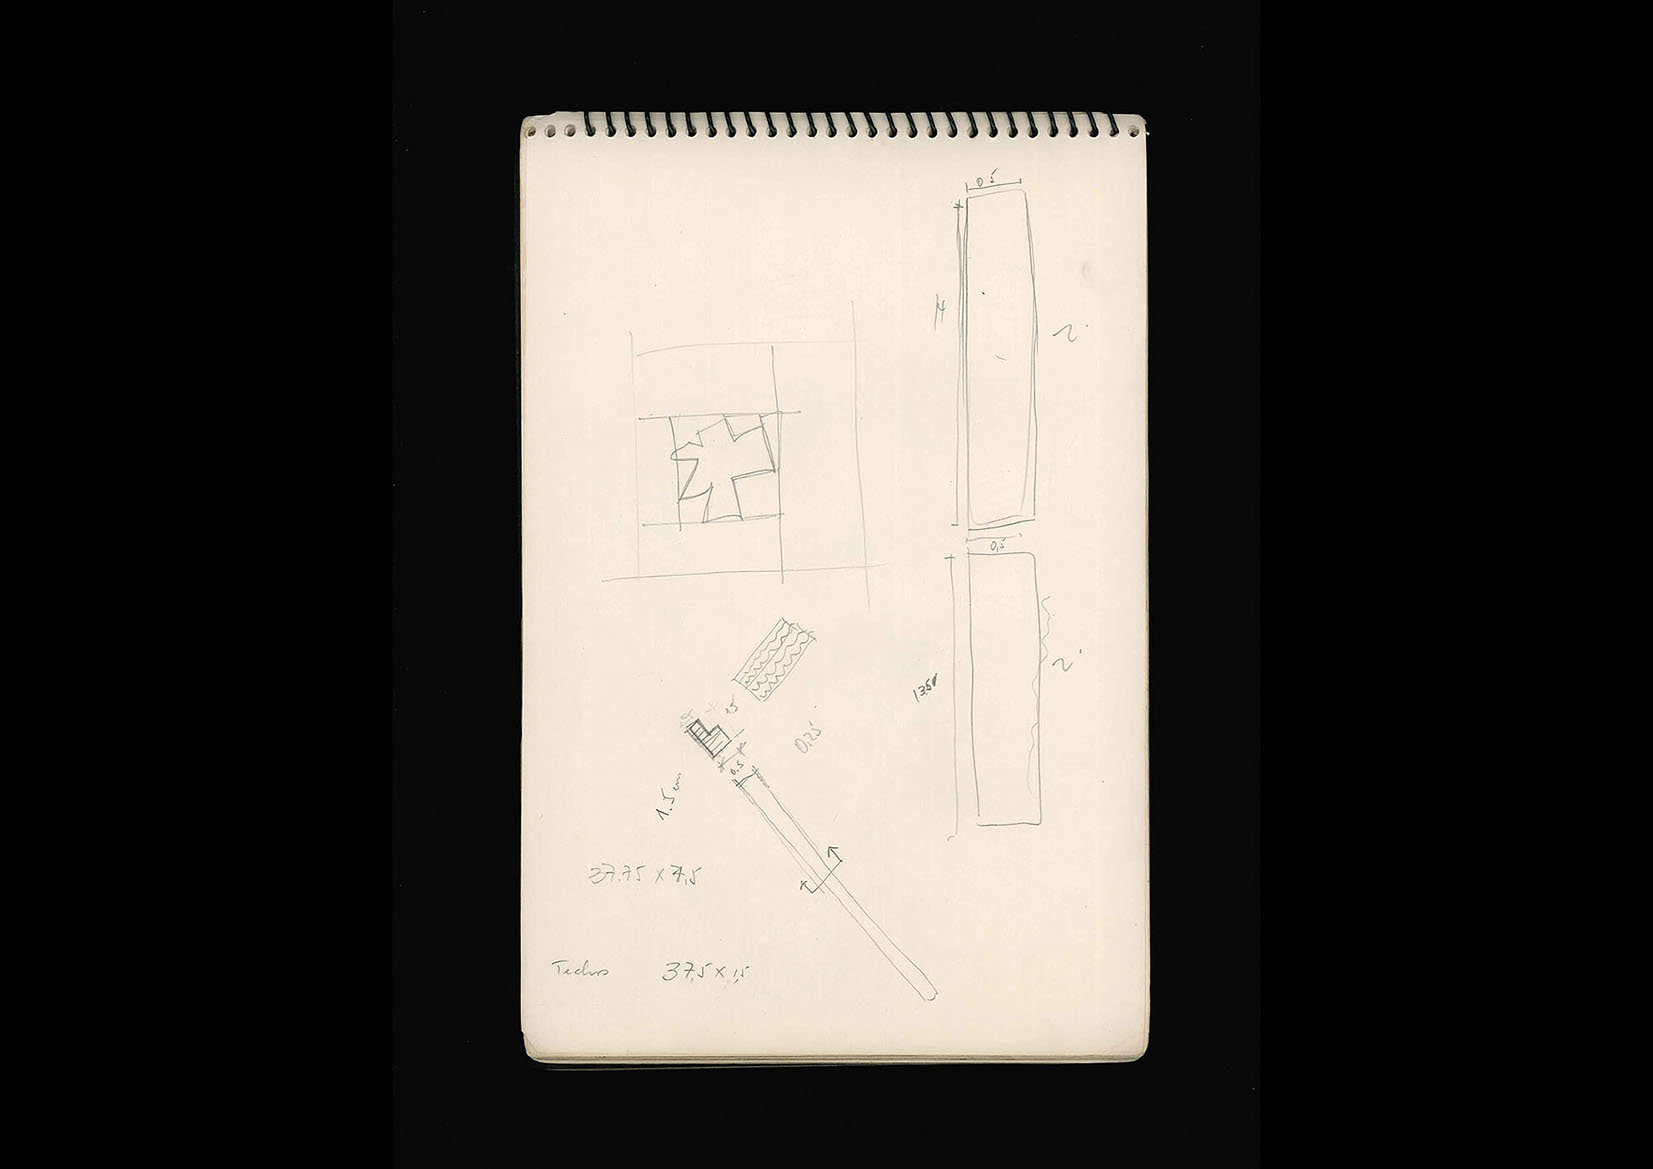 0.5
14
0,5
1.5
0.25
0.5
1.5 cm
37.75 x 7,5
Techos 37,5 x 1,5